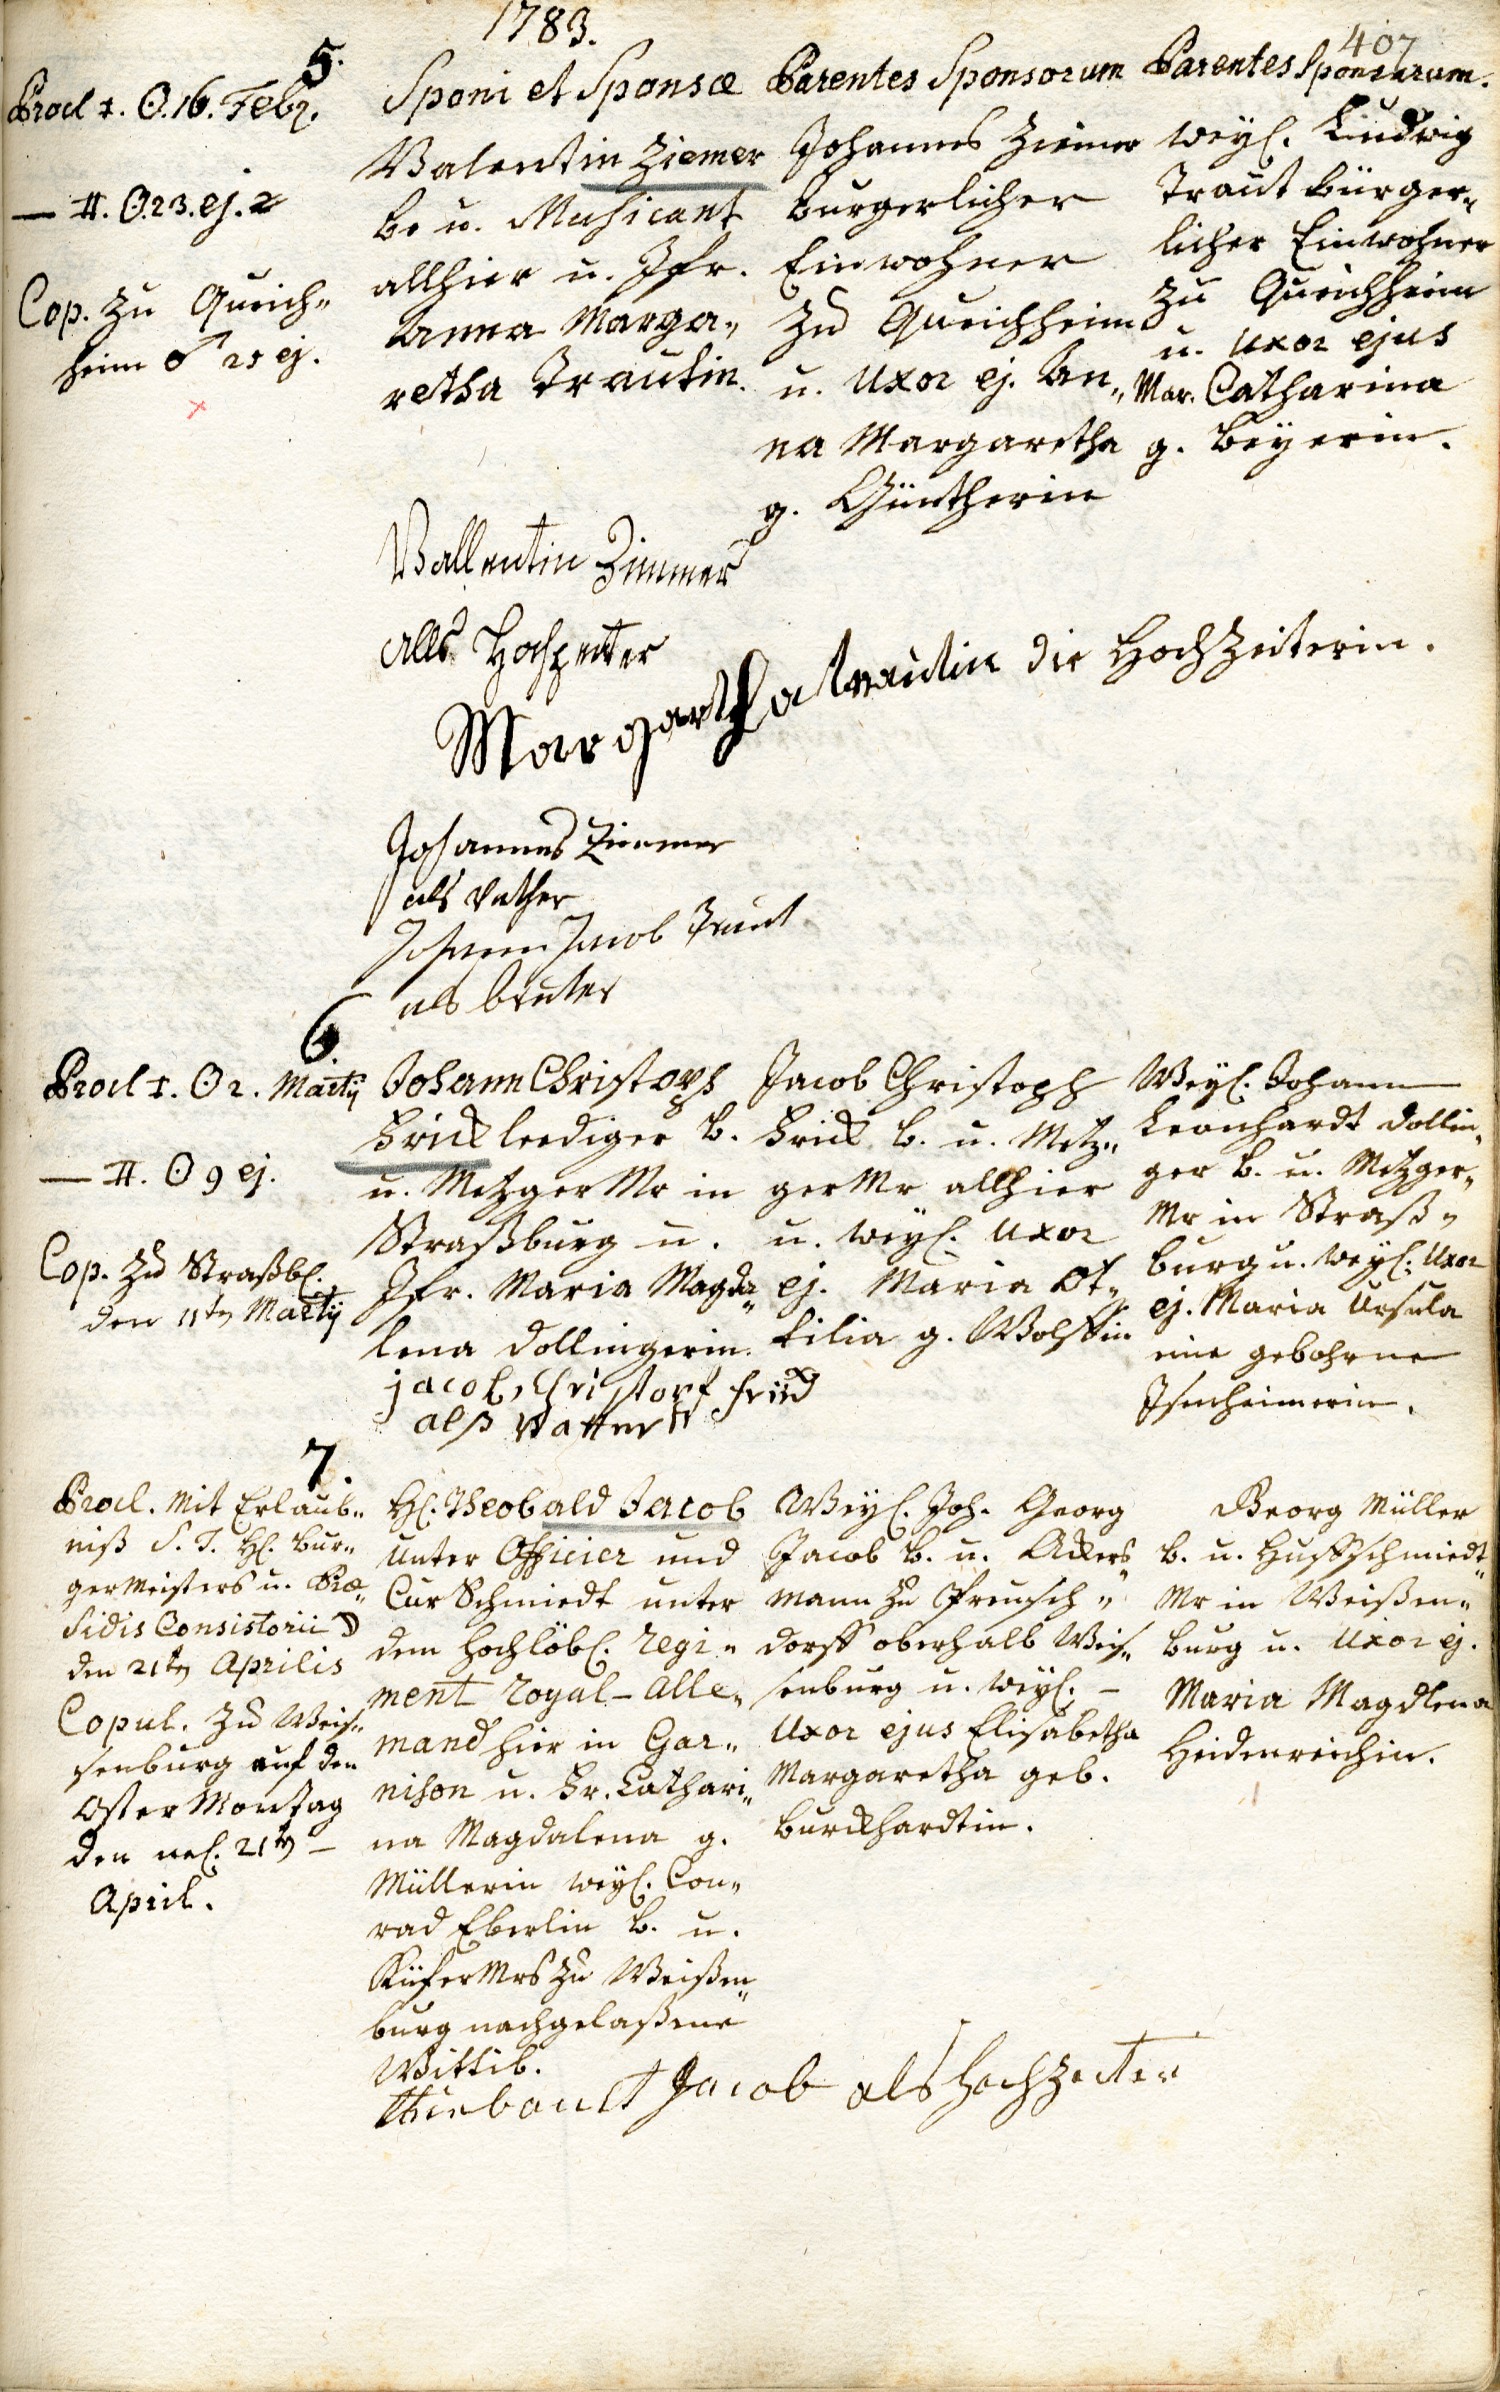 1783.
407
5.
Procl I. ☉. 16. Febr.
— II. ☉. 23. ej.
Cop. zu Queich„
heim ♂ 25 ej.
Sponi et Sponsæ
Valentin Ziemer
b. u. Musicant
allhier u. Jfr.
Anna Marga„
retha Trautin.
Parentes Sponsorum
Johannes Ziemer
burgerlicher
Einwohner
zu Queichheim
u. Uxor ej. An„
na Margaretha
g. Güntherin
Parentes Sponsarum.
weyl. Ludwig
Traut bürger„
licher Einwohner
zu Queichheim
u. Uxor ejus
Mar. Catharina
g. Beyerin.
Vallentin Zimmer
alls Hochzeiter
Margartha trautin die Hochzeiterin.
Johannes Ziemer
als Vather
Johann Jacob Traut
als bruter
6.
Procl I. ☉ 2. Martij
— II. ☉ 9 ej.
Cop. zu Straßb.
den 11ten Martij
Johann Christoph
Frick leediger b.
u. Metzger Mr in
Straßburg u.
Jfr. Maria Magda„
lena Dollingerin.
Jacob Christoph
Frick b. u. Metz„
ger Mr allhier
u. weyl. Uxor
ej. Maria Ot„
tilia g. Wolffin
Weyl. Johann
Leonhardt Dollin„
ger b. u. Metzger„
Mr in Straß„
burg u. weyl. Uxor
ej. Maria Ursula
eine gebohrne
Isenheimerin.
jacob Christopf frick
alß Vatter
7.
Procl. mit Erlaub„
niß S. T. H. Bur„
germeisters u. Præ„
sidis Consistorii
den 21ten Aprilis
Copul. zu Weis„
senburg auf den
Oster Montag
den nel. 21ten —
April.
H. Theobald Jacob
Unter Officier und
Cur Schmiedt unter
dem hochlöbl. Regi„
ment Royal-Alle„
mand hier in Gar„
nison u. Fr. Cathari„
na Magdalena g.
Müllerin weyl. Con„
rad Eberlin b. u.
Küfer Mrs zu Weißen„
burg nachgelaßene
Wittib.
Weyl. Joh. Georg
Jacob b. u. Ackers„
mann zu Preusch„
dorff oberhalb Weis„
senburg u. weyl. —
Uxor ejus Elisabetha
Margaretha geb.
Burckhardtin.
Georg Müller
b. u. Huffschmiedt„
Mr in Weißen„
burg u. Uxor ej.
Maria Magdlena
Heidenreichin.
thiebault Jacob als hochzeiter